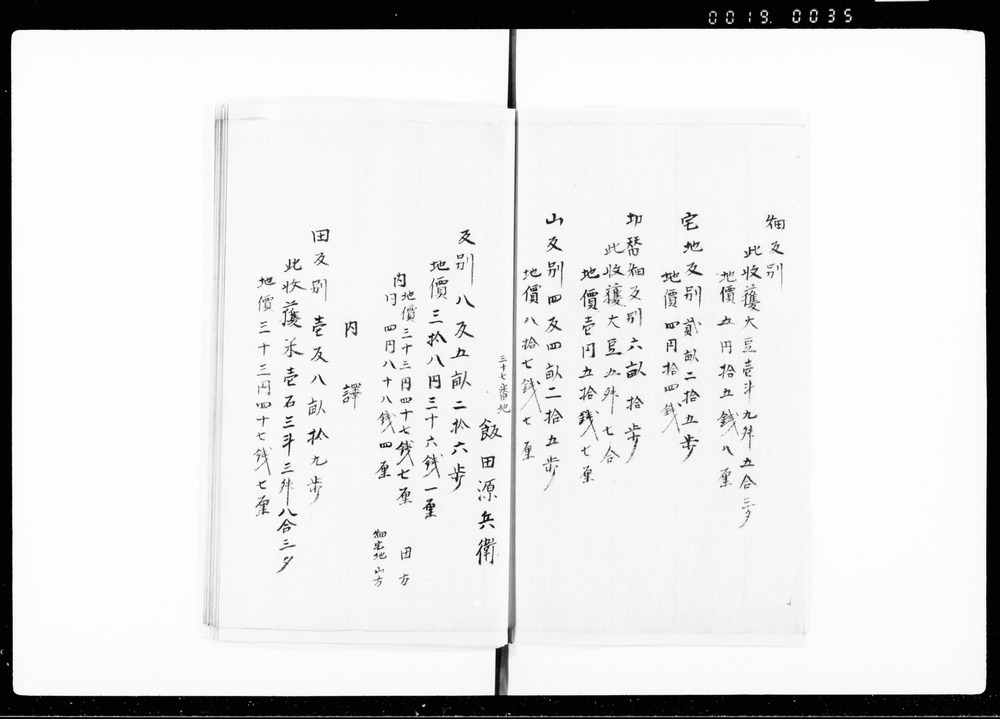 0019. 0035
畑反別
此收獲大豆壱斗九舛五合三夕
地價五円拾五錢八厘
宅地反別貳畝二拾五歩
地價四円拾四錢
切替畑反別六畝拾歩
此收獲大豆五舛七合
地價壱円五拾錢七厘
山反別四反四畝二拾五歩
地價八拾七錢七厘
三十七番地
飯田源兵衛
反別八反五畝二拾六歩
地價三拾八円三十六錢一厘
内地價三十三円四十七錢七厘 田方
内円四円八十八錢四厘 畑宅地山方
内譯
田反別壱反八畝拾九歩
此收獲米壱石三斗三舛八合三夕
地價三十三円四十七錢七厘